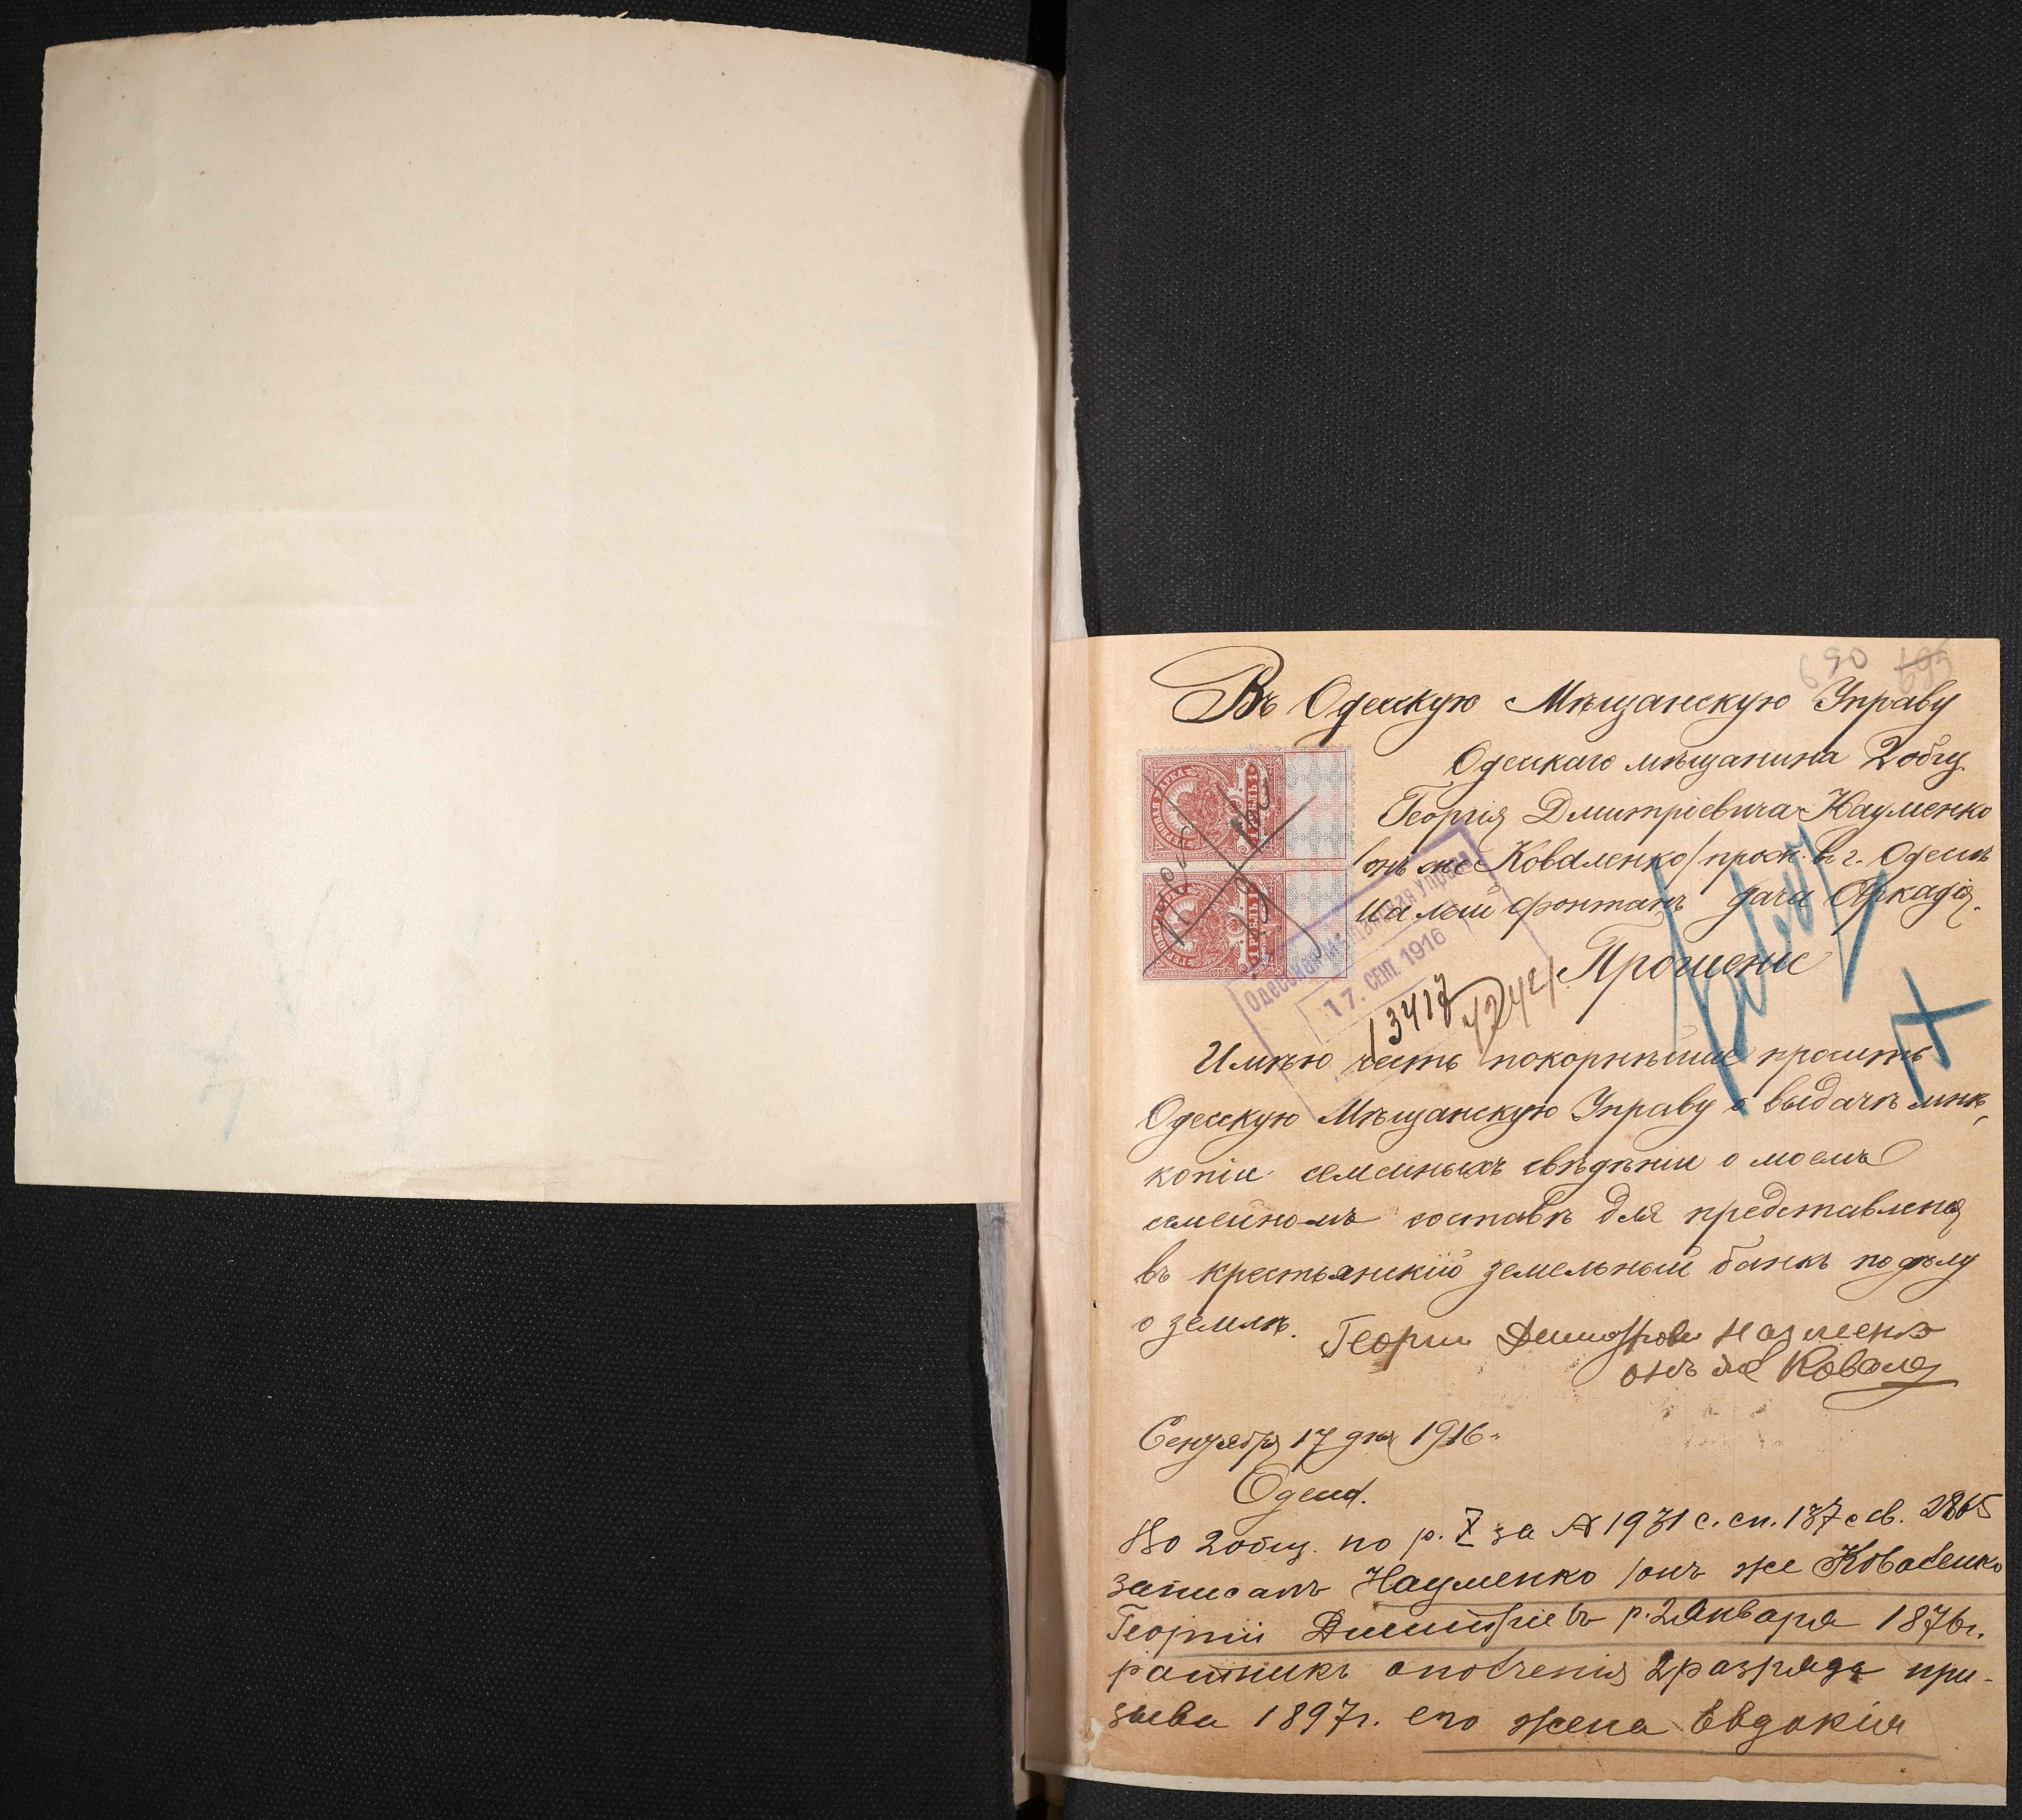 690 695
Въ Одесскую Мѣщанскую Управу
Одесскаго мѣщанина 2 общ.
Георгія Дмитріевича Науменко
/онъ же Коваленко/ прож. въ г. Одессѣ
Малый фонтанъ дача Аркадія.
ГЕРБОВАЯ МАРКА
1 РУБЛЬ 1
1 РУБЛЬ 1
Одесская Мѣщанская Управа
17. СЕН. 1916
13417
Прошеніе
Имѣю честь покорнѣйше просить
Одесскую Мѣщанскую Управу о выдачѣ мнѣ,
копіи семейныхъ свѣдѣній о моемъ
семейномъ составѣ для представленія
въ крестьянскій земельный банкъ по дѣлу
о землѣ.
Георги Дмитрови Назменко
онъ же Ковале
Сентября 17 дня 1916 г.
Одесса.
Во 2 общ. по р. X за № 1931 с. сп. 137 с св. 2865
записанъ Науменко /онъ же Коваленко
Георгій Дмитріевъ р. 2 Января 1876 г.
ратникъ ополченія 2 разряда при-
зыва 1897 г. его жена Евдокія